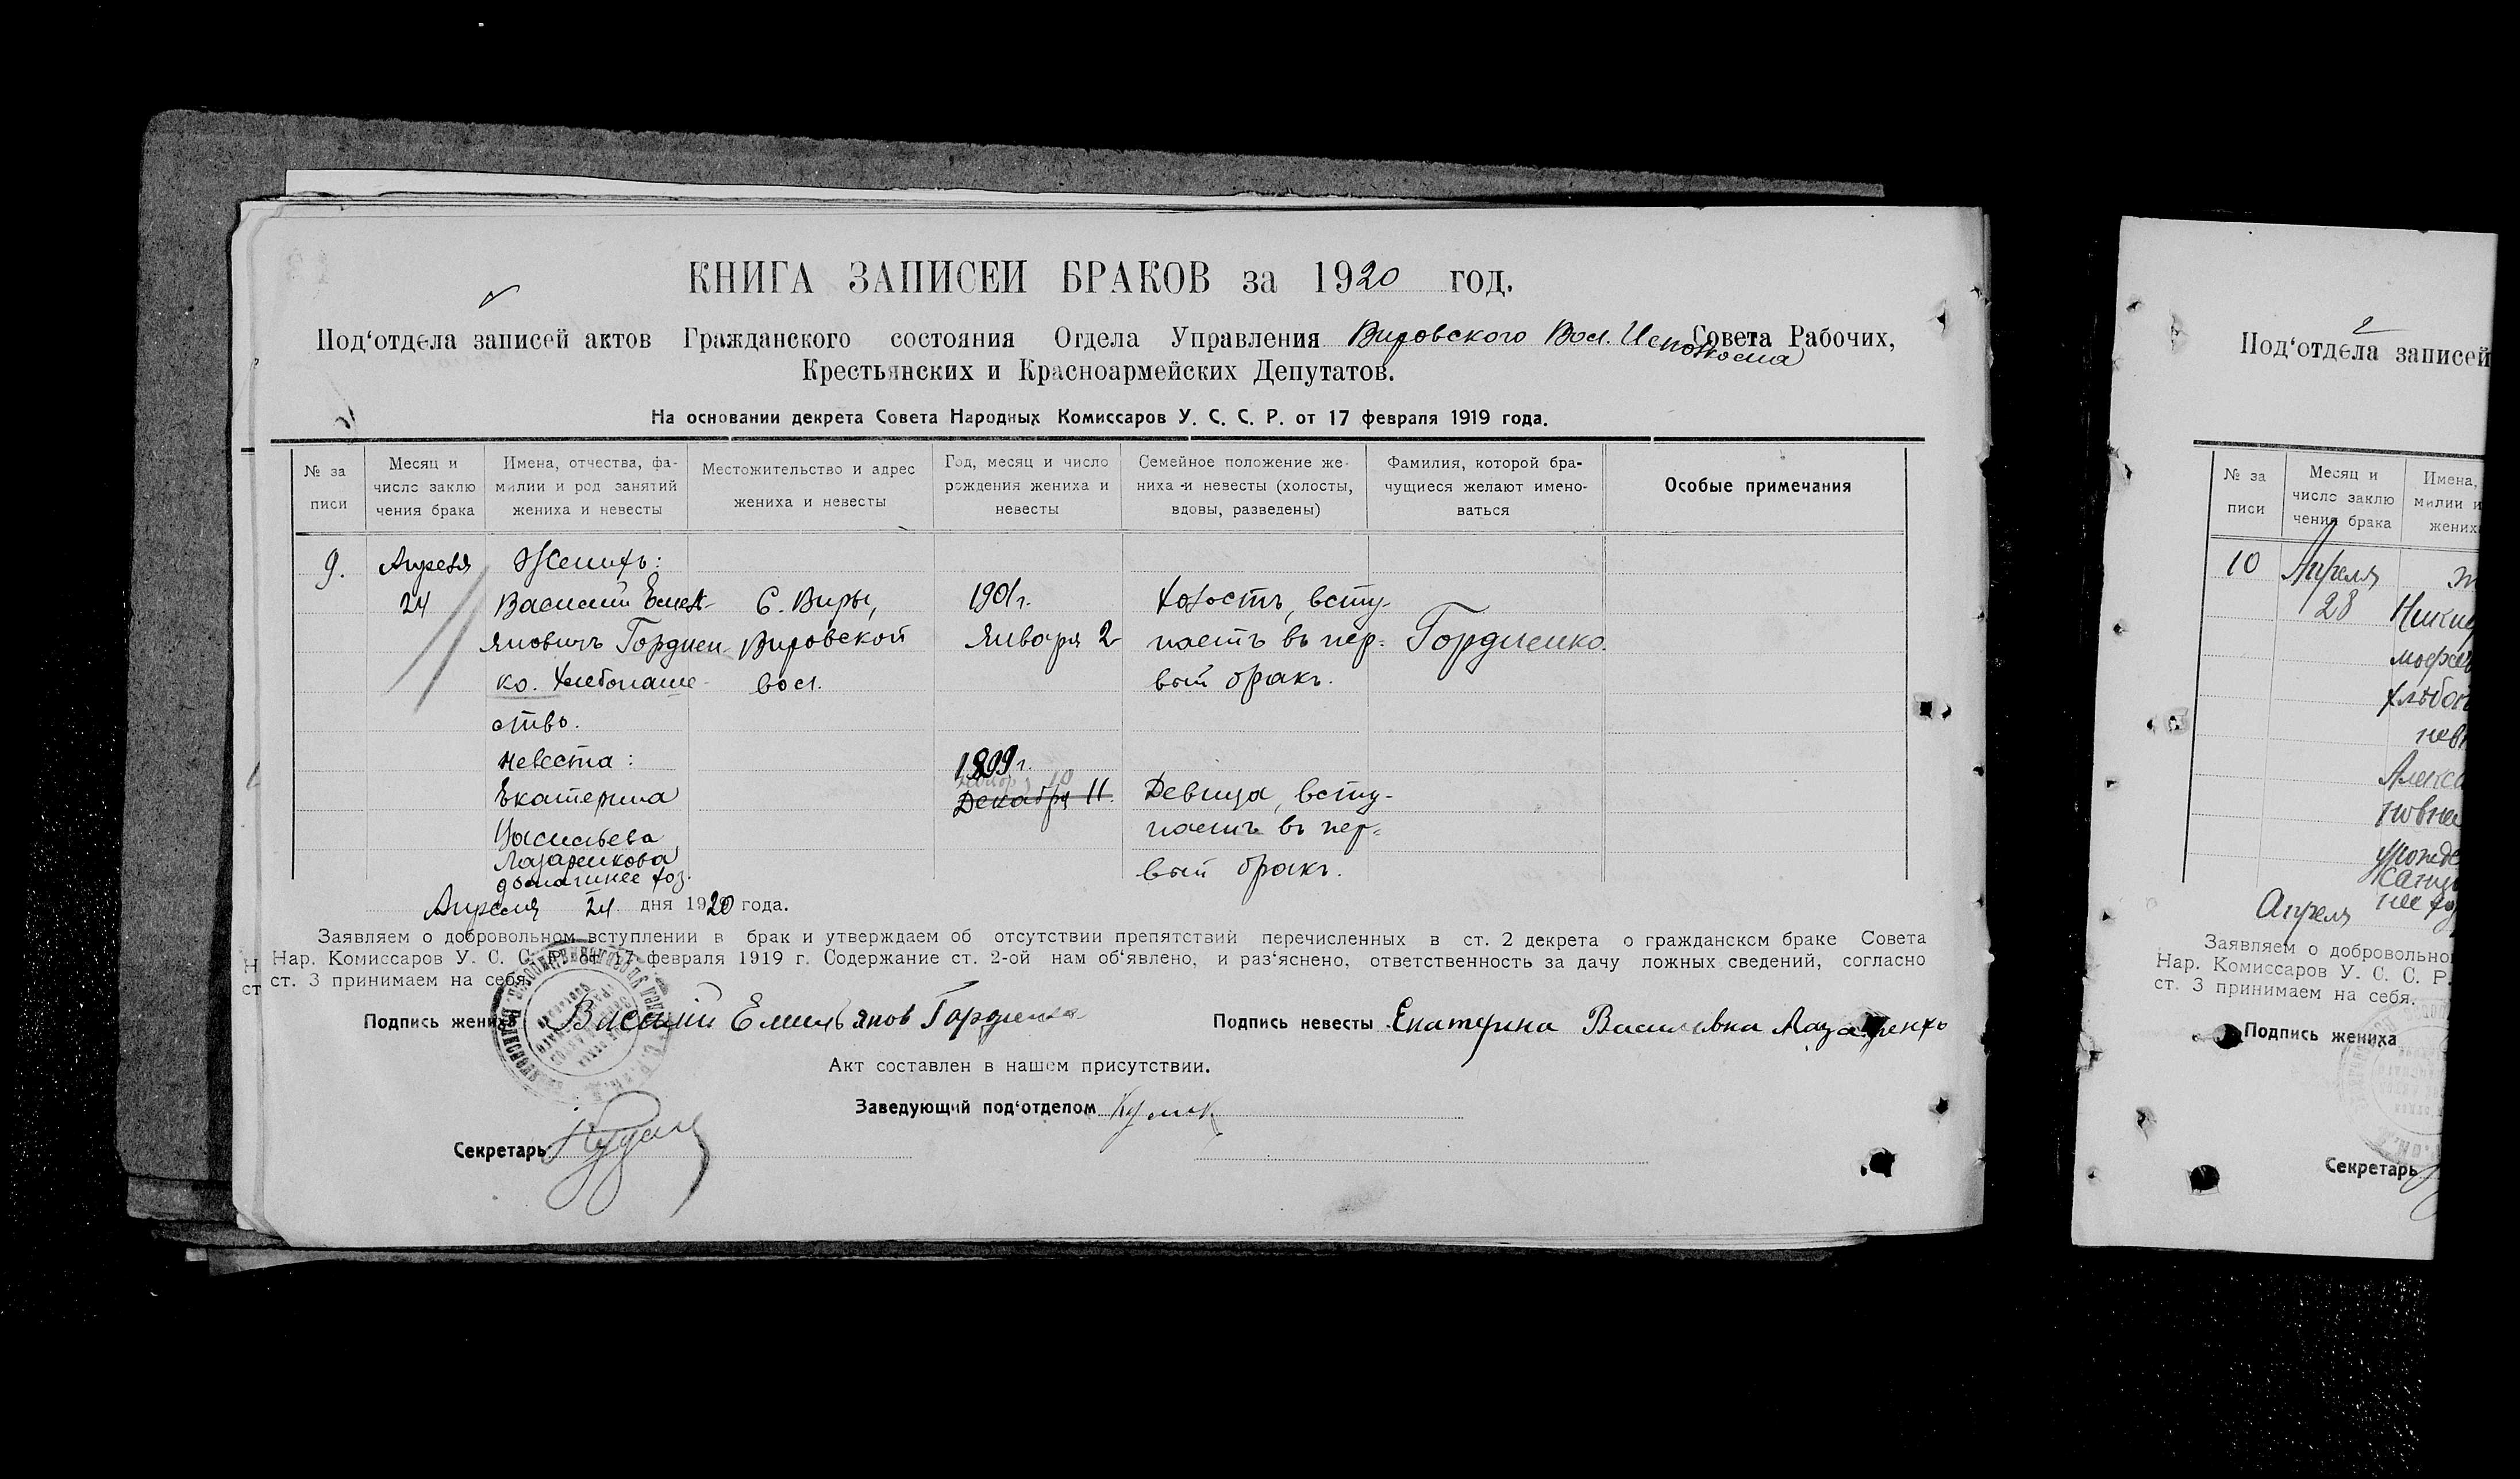 КНИГА ЗАПИСЕЙ БРАКОВ за 1920 год.
Под‘отдела записей актов Гражданского состояния Отдела Управления Вировского Вол. Исполкома Совета Рабочих,
Крестьянских и Красноармейских Депутатов.
На основании декрета Совета Народных Комиссаров У. С. С. Р. от 17 февраля 1919 года.
№ за
писи
Месяц и
число заклю
чения брака
Имена, отчества, фа-
милии и род занятий
жениха и невесты
Местожительство и адрес
жениха и невесты
Год, месяц и число
рождения жениха и
невесты
Семейное положение же-
ниха и невесты (холосты,
вдовы, разведены)
Фамилия, которой бра-
чущиеся желают имено-
ваться
Особые примечания
9.
Апреля
24
Женихъ:
Василий Емел-
яновичъ Гордиен-
ко. Хлебопаше-
ство.
невеста:
Екатерина
Васильева
Лазаренкова
домашнее хоз.
С. Виры,
Вировской
вол.
1901г.
Января 2
1899г.
Декабря 11.
холостъ, всту-
паетъ въ пер-
вый бракъ.
Девица, всту-
паетъ въ пер-
вый бракъ.
Гордиенко.
Апреля 24 дня 1920 года.
Заявляем о добровольном вступлении в брак и утверждаем об отсутствии препятствий перечисленных в ст. 2 декрета о гражданском браке Совета
Нар. Комиссаров У. С. С. Р. от 17 февраля 1919 г. Содержание ст. 2-ой нам об‘явлено, и раз‘яснено, ответственность за дачу ложных сведений, согласно
ст. 3 принимаем на себя.
Подпись жениха Василий Емельянов Гордиенко
Подпись невесты Екатерина Василевна Лазаренко
Акт составлен в нашем присутствии.
Заведующий под‘отделом
Секретарь
Под‘отдела записей
№ за
писи
Месяц и
число заклю
чения брака
Имена,
милии и
жених
10
Апреля
28
Апреля
Заявляем о добровольно
Нар. Комиссаров У. С. С. Р.
ст. 3 принимаем на себя.
Подпись жениха
Секретарь